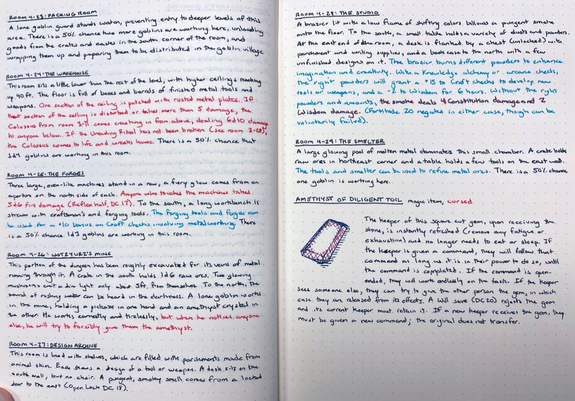 ROOM 4-23: PACKING ROOM
A lone goblin guard stands watch, preventing entry to deeper levels of this
area. There is a 50% chance two more goblins are working here; unloading
goods from the crates and in the south corner of the room, and
wrapping them up and preparing them to be distributed in the goblin village.
ROOM 4-24: THE WAREHOUSE
This room sits a little lower than the rest of the level, with higher ceilings reaching
up 40ft. The floor is full of boxes and barrels of finished metal tools and
weapons. One section of the ceiling is patched with rusted metal plates. If
that section of the ceiling is disturbed or takes more than 5 damage, the
Colossus from room 3- comes crashing in from above, dealing 6d10 damage
to anyone below. If the Unending Ritual has not been broken (see room 3-28),
the Colossus comes to life and wreaks havoc. There is a 50% chance that
1d4 goblins are working in this room.
ROOM 4-25: THE FORGES
Three large, oven-like machines stand in a row, a fiery glow comes from an
aperture on the north side of each. Anyone who touches the machines takes
3d6 fire damage (Reflex Half, DC 17). To the south, a long workbench is
strewn with craftsman's and forging tools. The forging tools and forges can
be used for a +10 bonus on Craft checks involving metalworking. There
is a 50% chance 1d3 goblins are working in this room.
ROOM 4-26: MINE
This portion of the dungeon has been roughly excavated for its veins of metal
running through it. A crate in the south holds 1d6 raw ores. Two glowing
mushrooms cast a dim light only about 5ft. from themselves. To the north, the
sound of rushing water can be heard in the darkness. A lone goblin works
in the mine, holding a pickaxe in one hand and an amethyst crystal in
the other. He works earnestly and tirelessly, but when he notices anyone
else, he will try to forcibly give them the amethyst.
ROOM 4-27: DESIGN ARCHIVE
This room is lined with shelves, which are filled with parchments made from
animal skin. Each shows a design of a tool or weapon. A desk sits on the
south wall, but no chair. A pungent, smokey smell comes from a locked
door to the east (Open Lock DC 18).
ROOM 4-28: THE STUDIO
A brazier lit with a low flame of shifting colors billows a pungent smoke
onto the floor. To the south, a small table holds a variety of dusts and powders.
At the east end of the room, a desk is flanked by a chest (unlocked) with
parchment and writing supplies, and a book case to the north with a few
unfinished designs on it. The brazier burns different powders to enhance
imagination and creativity. With a Knowledge: alchemy or arcana check,
the "right" powders will grant a +5 to Craft checks to design new
tools/weapons, and a -2 to Wisdom for 6 hours. Without the right
powders and amounts, the smoke deals 4 Constitution damage and 2
Wisdom damage. (Fortitude 20 negated in either case, though can be
voluntarily failed).
ROOM 4-29: THE SMELTER
A large glowing pool of molten metal dominates this small chamber. A crate holds
raw ores in northeast corner and a table holds a few tools on the east wall.
The tools and smelter can be used to refine metal ores. There is a 50% chance
one goblin is working here.
AMETHYST OF DILIGENT TOIL magic item, cursed
The keeper of this square cut gem, upon receiving
the stone, is instantly refreshed (remove any fatigue or
exhaustion) and no longer needs to eat or sleep. If
the keeper is given a command, they will follow that
command as long as it is in their power to do so, until
the command is completed. If the command is open-
ended, they will work endlessly on the task. If the keeper
sees someone else, they can try to give the other person the gem, in which
case they are released from its effects. A Will save (DC 20) rejects the gem
and its current keeper must retain it. If a new keeper receives the gem, they
must be given a new command; the original does not transfer.